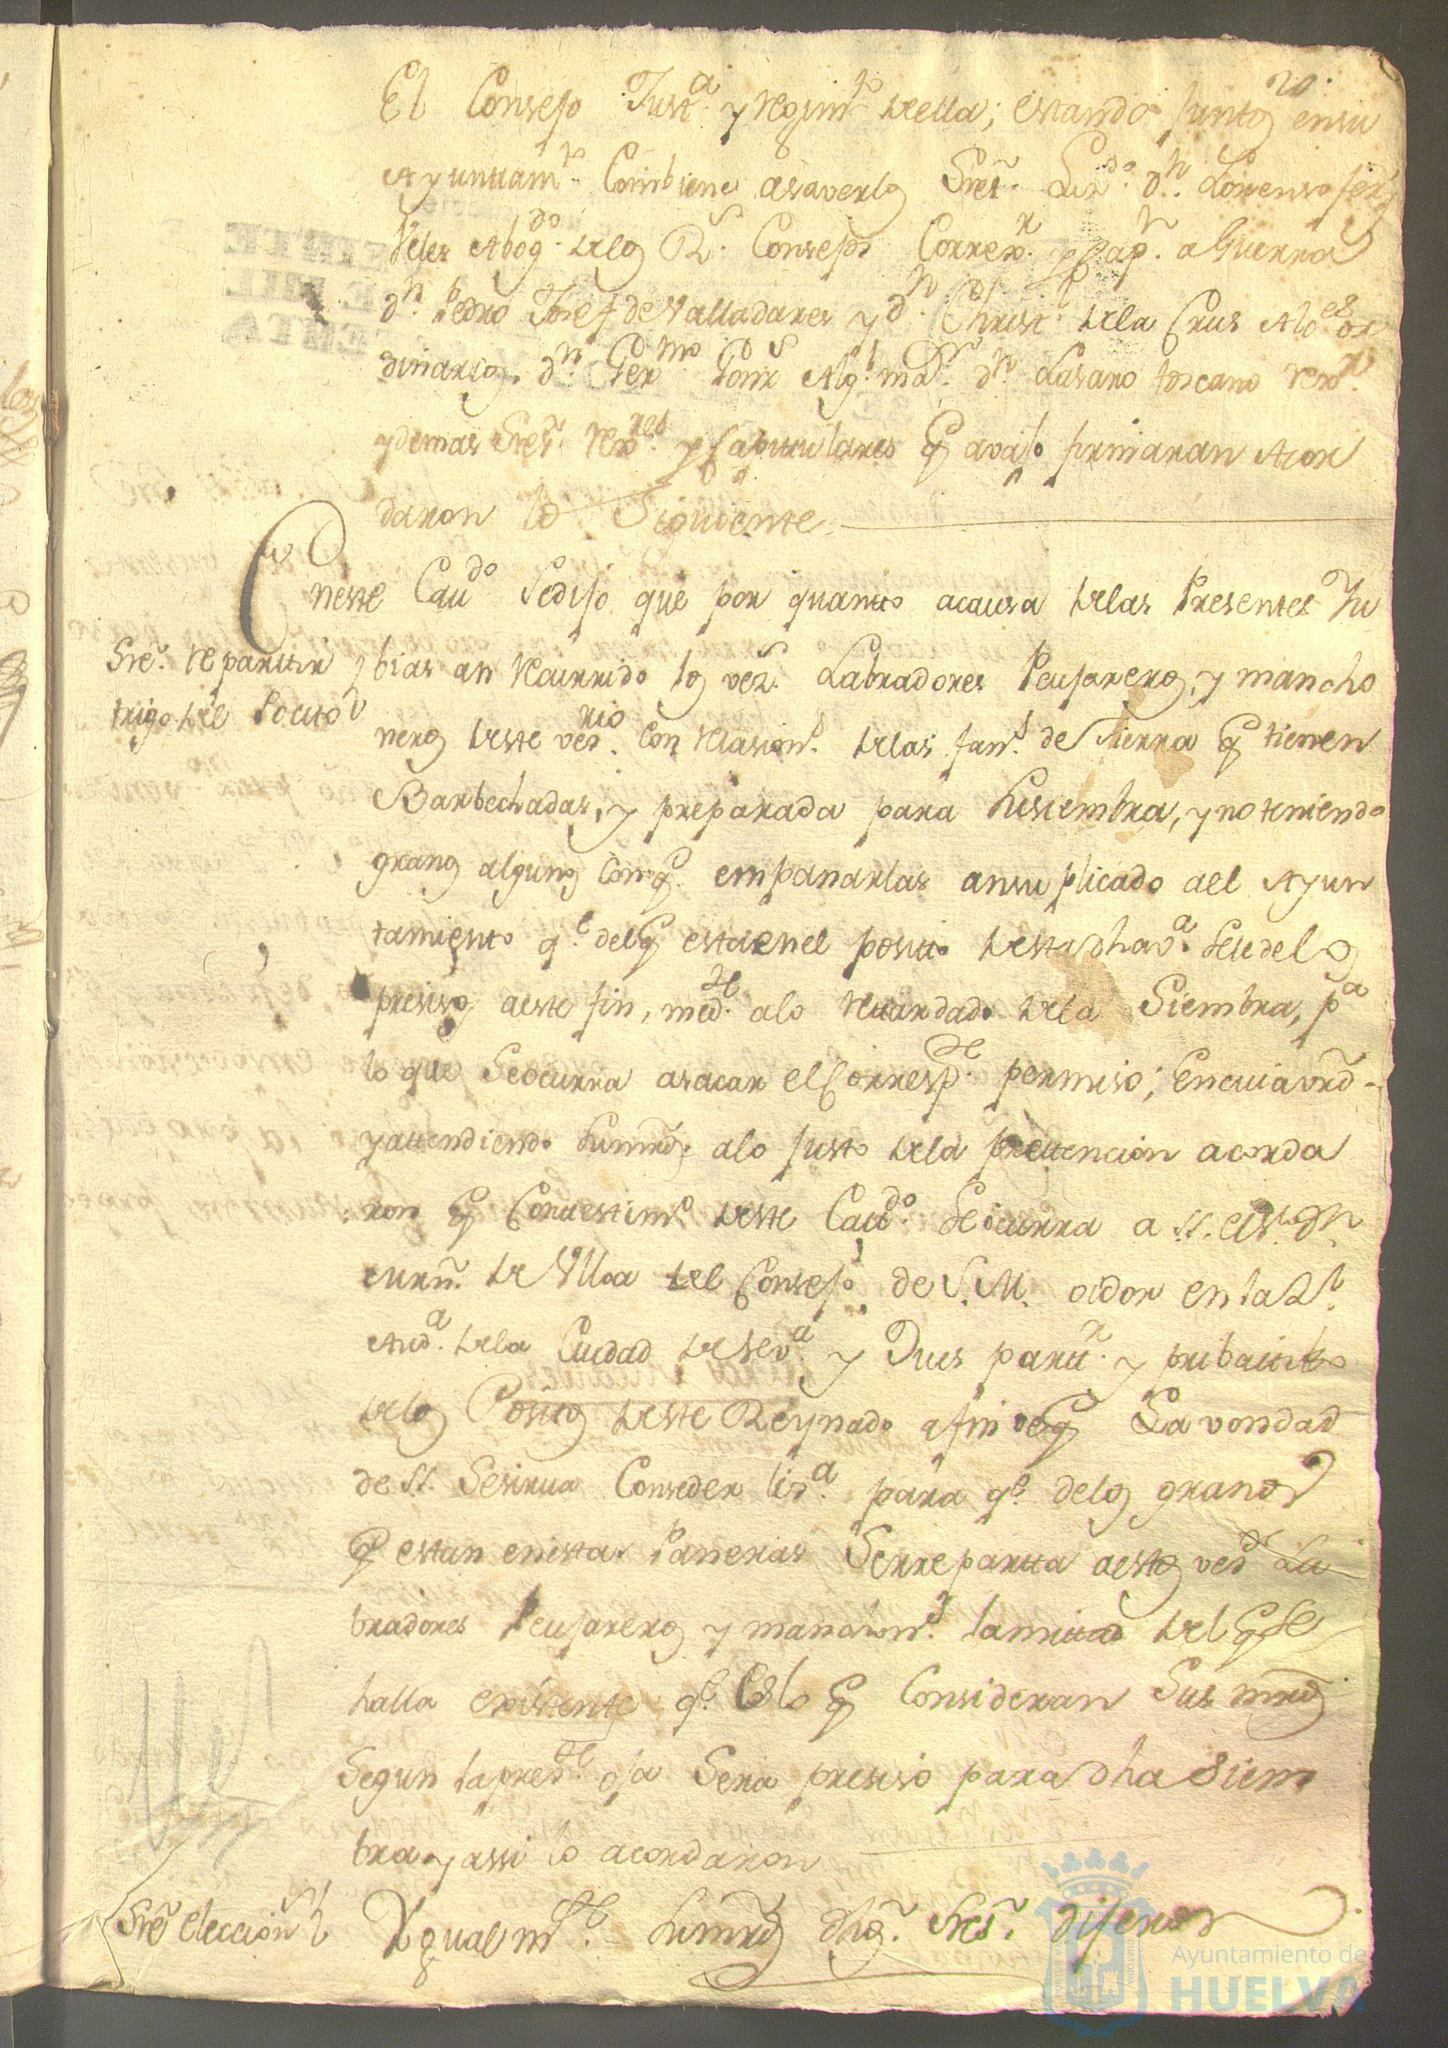 20.
El Consejo Justª. y Regimto. della; estando juntos en su
Ayuntamto. Combiene a saver los Sres. Licdo. Dn. Lorenso fers
Veles Abogdo. de los Rs. Consejos Correxr. y Capn. a Guerra
Dn. Pedro Josef de Valladares y Dn. Christl. de la Crus Alces or
dinarios, Dn. Germo Gonz Algl. mar. Dn. Lasaro toscano rexor.
y demas Sres. Rexres y Capitulares q avajo firmaran Acor
daron lo Siguiente
En este Cavdo Se dijo que por quanto a causa de las Presentes Llu
Sre. repartir
trigo del Posito
bias an recurrido los vezs. Labradores Peujareros, y mancho
neros deste vesrio. con relasions. de las fans. de tierra q tienen
Barbechadas, y preparada para su siembra, y no teniendo
granos algunos con q. empanarlas an suplicado a el Ayun
tamiento qe. del q esta en el posito de esta dha vª. se le de los
presisos a este fin, mede. a lo retardado de la Siembra, pª
lo que Se ocurra a sacar el Correspte. permiso; En cuia vrd
y attendiendo Sus mrds. a lo justo de la pretencion acorda
ron q Con testimo. deste Cavdo. Se ocurra a S. Sª. Dn.
de Ulloa del Consejo de S. M. oidor en la Rl.
Audª. de la Ciudad de Sevª y Jues partr. y pribatibo
de los Positos deste Reynado a fin de q La vondad
de S. Se sirva Conseder lizª. para qe. de los granos
q estan en esta Paneras Se rreparta a estos vesos La
bradores Peujareros y manchons. la mitad del q Se
halla existente qe. es lo q Consideran Sus mrds
Segun la preste. oja Sera presiso para dha Siem
bra y assi lo acordaron
Sre eleccion
Ygualmte. Sus mrds dhos. Sres. dijeron
Ayuntamiento de
HUELVA